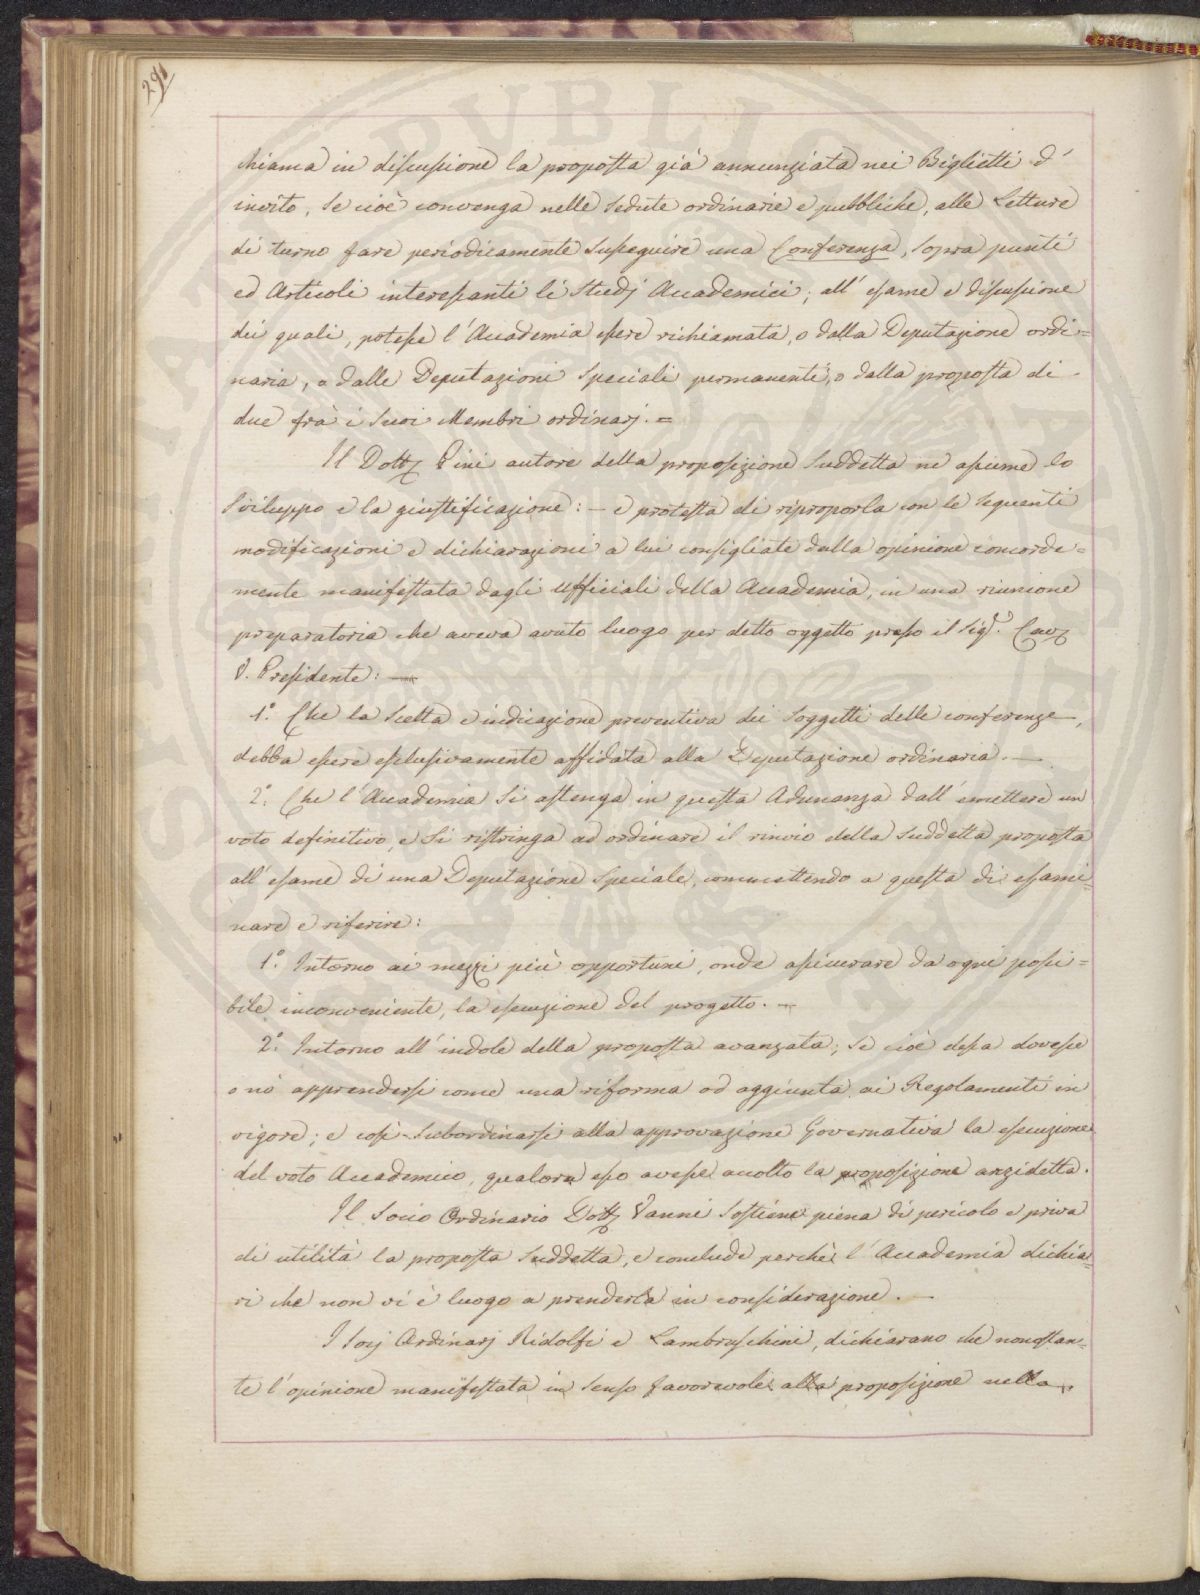 291
chiama in discussione la proposta già annunziata nei Biglietti d'
invito, se cioè convenga nelle sedute ordinarie e pubbliche, alle Letture
di turno fare periodicamente susseguire una Conferenza, sopra punti
ed Articoli interessanti li Studj Accademici; all'esame e discussione
dei quali, potesse l'Accademia essere richiamata, o dalla Deputazione ordi=
naria, o dalle Deputazioni speciali permanenti, o dalla proposta di
due frà i suoi Membri ordinarj. =
Il Dott. Pini autore della proposizione suddetta ne assume lo
sviluppo e la giustificazione: — e protesta di riproporla con le seguenti
modificazioni e dichiarazioni a lui consigliate dalla opinione concorde=
mente manifestata dagli Ufficiali della Accademia, in una riunione
preparatoria che aveva avuto luogo per detto oggetto presso il Sigr. Cav.
V. Presidente: —
1.° Che la scelta e indicazione preventiva dei soggetti delle conferenze,
debba essere esclusivamente affidata alla Deputazione ordinaria. —
2.° Che l'Accademia si astenga in questa Adunanza dall'emettere un
voto definitivo, e si ristringa ad ordinare il rinvio della suddetta proposta
all'esame di una Deputazione speciale, commettendo a questa di esami=
nare e riferire:
1.° Intorno ai mezzi più opportuni, onde assicurare da ogni possi=
bile inconveniente, la esecuzione del progetto. —
2.° Intorno all'indole della proposta avanzata; se cioè dessa dovesse
o nò apprendersi come una riforma od aggiunta ai Regolamenti in
vigore; e così subordinarsi alla approvazione Governativa la esecuzione
del voto Accademico, qualora esso avesse accolto la proposizione anzidetta.
Il Socio Ordinario Dott. Vanni sostiene piena di pericolo e priva
di utilità la proposta suddetta, e conclude perchè l'Accademia dichia=
ri che non vi è luogo a prenderla in considerazione. —
I Socj Ordinarj Ridolfi e Lambruschini, dichiarano che nonostan=
te l'opinione manifestata in senso favorevole alla proposizione nella